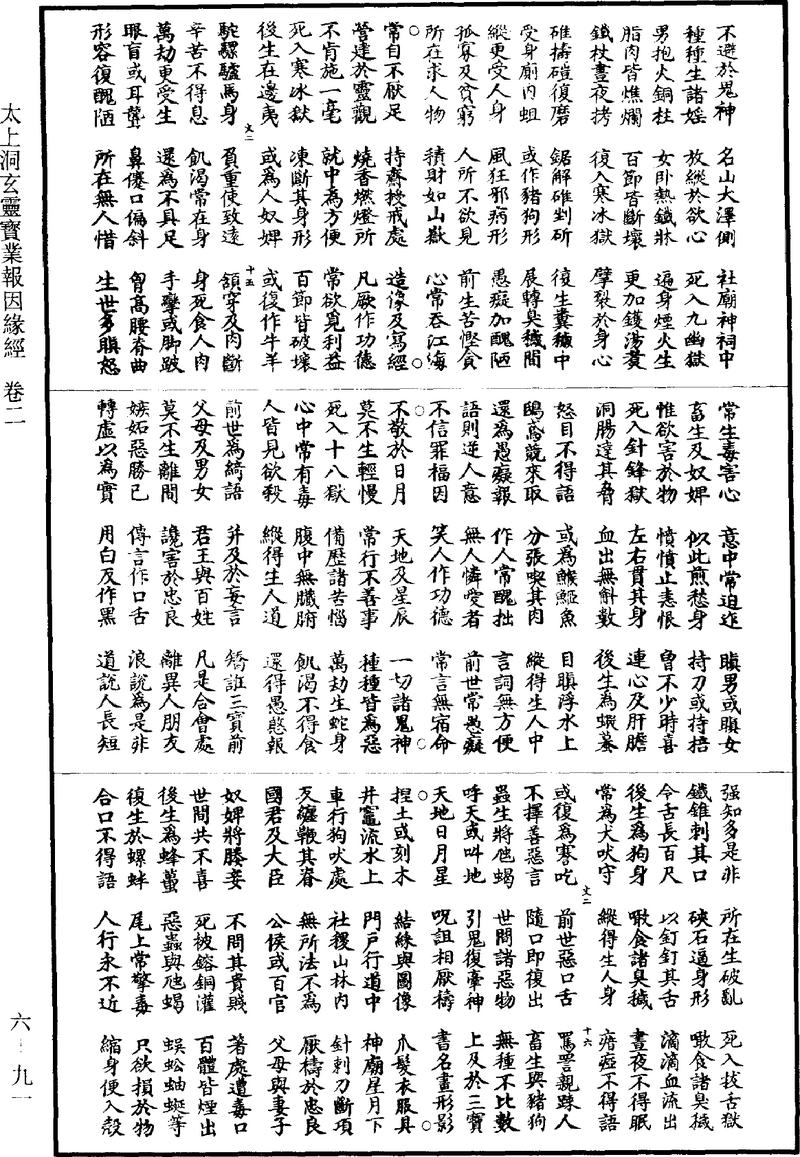 不避於鬼神 名山大澤側 社廟神祠中
種種生諸婬 放縱於欲心 死入九幽獄
男抱火銅柱 女卧熱鐵牀 遍身煙火生
脂肉皆燋爛 百節皆斷壞 更加鑊湯煑
鐵杖晝夜拷 復入寒冰獄 擘裂於身心
碓擣磑復磨 鋸解碓剉斫 復生糞穢中
受身廁肉蛆 或作豬狗形 展轉臭穢間
縱更受人身 風狂邪病形 愚癡加醜陋
孤寡及貧窮 人所不欲見 前生苦慳貪
所在求人物 積財如山嶽 心常吞江海
常自不厭足 持齋授戒處 造像及寫經
營造於靈觀 燒香燃燈所 凡厥作功德
不肯施一毫 就中為方便 常欲覓利益
死入寒冰獄 凍斷其身形 百節皆破壞
後生在邊夷 或為人奴婢 或復作牛羊
文二 十五
駝騾驢馬身 負重使致遠 領穿及肉斷
辛苦不得息 飢渴常在身 身死食人肉
萬劫更受生 還為不具足 手攣或脚跛
眼盲或耳聾 鼻齆口偏斜 胷高腰脊曲
形容復醜陋 所在無人惜 生世多瞋怒
常生毒害心 意中常迫迮 瞋男或瞋女
畜生及奴婢 似此煎愁身 持刀或持捂
惟欲害於物 憤憤止恚恨 曾不少時喜
死入針鋒獄 左右貫其身 連心及肝膽
洞腸達其脅 血出無斛數 後生為蝦蟇
怒目不得語 或為鯸䱌魚 目瞋浮水上
鴟鳶競來取 分張喫其肉 縱得生人中
還為愚癡報 作人常醜拙 言詞無方便
語則逆人意 無人憐愛者 前世常愚癡
不信罪福因 笑人作功德 常言無宿命
不敬於日月 天地及星辰 一切諸鬼神
莫不生輕慢 常行不善事 種種皆為惡
死入十八獄 備歷諸苦惱 萬劫生蛇身
心中常有毒 腹中無臟腑 飢渴不得食
人皆見欲殺 縱得生人道 還得愚憨報
前世為綺語 并及於妄言 矯誑三寶前
父母及男女 君王與百姓 凡是合會處
莫不生離間 讒害於忠良 離異人朋友
嫉妬惡勝己 傳言作口舌 浪說為是非
轉虛以為實 用白反作黑 道說人長短
强知多是非 所在生破亂 死入拔舌獄
鐵錐刺其口 硤石逼身形 噉食諸臭穢
令舌長百尺 以釘釘其舌 滴滴血流出
後生為狗身 噉食諸臭穢 晝夜不得眠
常為犬吠守 縱得生人身 瘖瘂不得語
文二 十六
或復為謇吃 前世惡口舌 罵詈親踈人
不擇善惡言 隨口即復出 畜生與豬狗
蟲生將虵蝎 世間諸惡物 無種不比數
呼天或叫地 引鬼復牽神 上及於三寶
天地日月星 呪詛相厭禱 書名畫形影
捏土或刻木 結縁與圖像 爪髮衣服具
井竈流水上 門戶行道中 神廟星月下
車行狗吠處 社稷山林内 針刺刀斷項
反纏鞭其脊 無所法不為 厭禱於忠良
國君及大臣 公侯或百官 父母與妻子
奴婢將媵妾 不問其貴賤 著處遭毒口
世間共不喜 死被鎔銅灌 百體皆煙出
後生為蜂蠆 惡蟲與虵蝎 蜈蚣蚰蜒等
復生於螺蚌 尾上常擎毒 只欲損於物
合口不得語 人行永不近 縮身便入殼
太上洞玄靈寶業報因緣經 卷二
六-九一